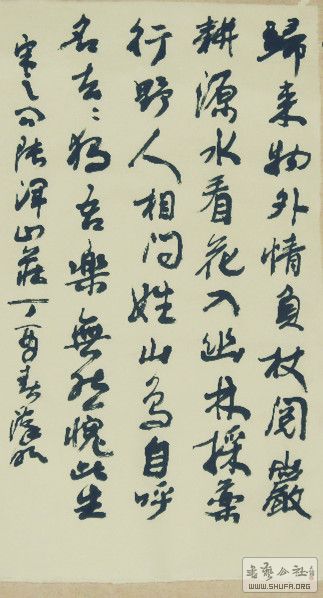 歸来物外情負杖閱巖
耕源水看花入幽林採藥
行野人相问姓山鳥自呼
名去々獨吾樂無然愧此生
宋之问陸渾山莊丁酉春
书藝公社
WWW.SHUFA.ORG